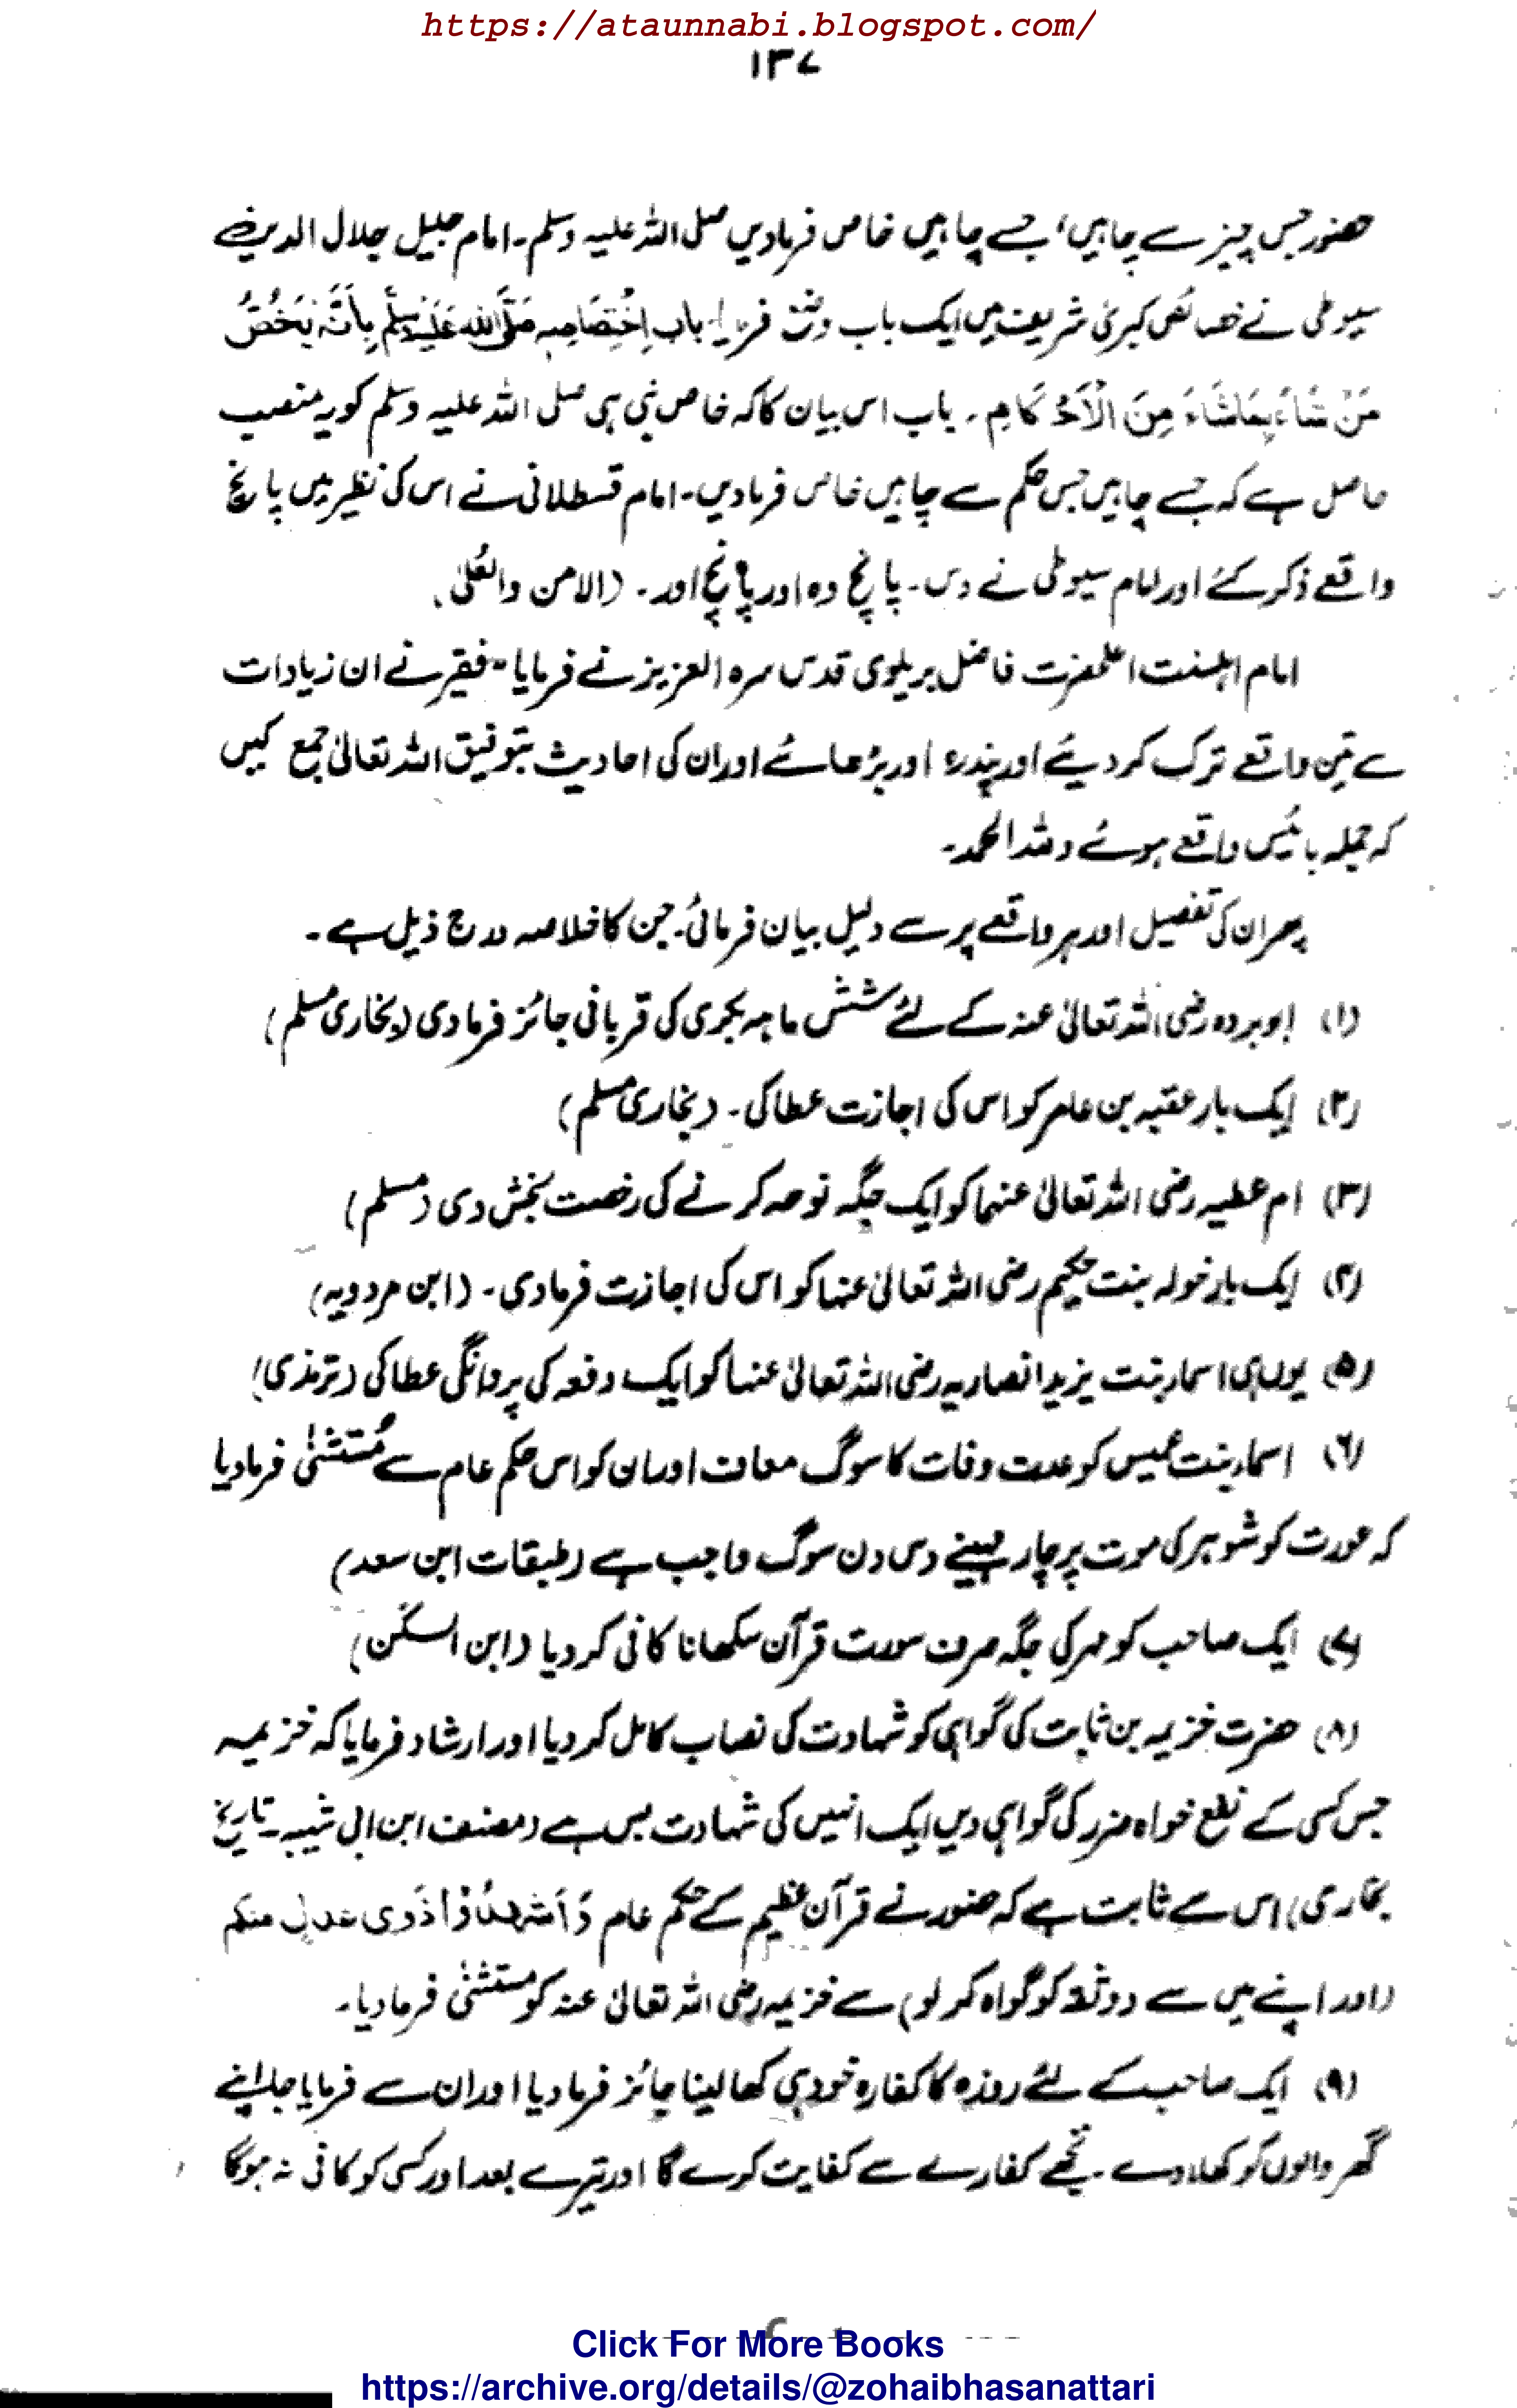 https://ataunnabi.blogspot.com/
۱۳۷
حضور جس چیز سے چاہیں، جسے چاہیں خاص فرمادیں صلی اللہ علیہ وسلم۔ امام جلیل جلال الدین
سیوطی نے خصائص کبریٰ شریف میں ایک باب وضع فرمایا باب اِخْتِصَاصِہٖ صَلَّی اللّٰہُ عَلَیْہِ وَسَلَّمَ بِاَنَّہٗ یَخُصُّ
مَنْ شَاءَ بِمَا شَاءَ مِنَ الْاَحْکَامِ۔ باب اس بیان کا کہ خاص نبی ہی صلی اللہ علیہ وسلم کو یہ منصب
حاصل ہے کہ جسے چاہیں جس حکم سے چاہیں خاص فرمادیں۔ امام قسطلانی نے اس کی نظیر میں پانچ
واقعے ذکر کئے اور امام سیوطی نے دس۔ پانچ وہ اور پانچ اور۔ (الامن والعُلیٰ)
امام اہلسنت اعلحضرت فاضل بریلوی قدس سرہ العزیز نے فرمایا "فقیر نے ان زیادات
سے تین واقعے ترک کر دیئے اور پندرہ اور بڑھائے اور ان کی احادیث بتوفیق اللہ تعالیٰ جمع کیں
کہ جملہ بائیس واقعے ہوئے وللہ الحمد۔
پھر ان کی تفصیل اور ہر واقعے پر سے دلیل بیان فرمائی۔ جن کا خلاصہ درج ذیل ہے۔
(۱) ابوبردہ رضی اللہ تعالیٰ عنہ کے لئے شش ماہہ بکری کی قربانی جائز فرمادی (بخاری مسلم)
(۲) ایک بار عقبہ بن عامر کو اس کی اجازت عطا کی۔ (بخاری مسلم)
(۳) ام عطیہ رضی اللہ تعالیٰ عنہا کو ایک جگہ نوحہ کرنے کی رخصت بخش دی (مسلم)
(۴) ایک بار خولہ بنت حکیم رضی اللہ تعالیٰ عنہا کو اس کی اجازت فرمادی۔ (ابن مردویہ)
(۵) یوں ہی اسمار بنت یزید انصاریہ رضی اللہ تعالیٰ عنہا کو ایک دفعہ کی پروانگی عطا کی (ترمذی)
(۶) اسماء بنت عمیس کو عدت وفات کا سوگ معاف اور ان کو اس حکم عام سے مُستثنٰی فرمادیا
کہ عورت کو شوہر کی موت پر چار مہینے دس دن سوگ واجب ہے (طبقات ابن سعد)
(۷) ایک صاحب کو مہر کی جگہ صرف سورت قرآن سکھانا کافی کر دیا (ابن السکن)
(۸) حضرت خزیمہ بن ثابت کی گواہی کو شہادت کی نصاب کامل کر دیا اور ارشاد فرمایا کہ خزیمہ
جس کسی کے نفع خواہ ضرر کی گواہی دیں ایک انہیں کی شہادت بس ہے (مصنف ابن ابی شیبہ۔ تاریخ
بخاری) اس سے ثابت ہے کہ حضور نے قرآن عظیم کے حکم عام وَاَشْہِدُوْا ذَوَی عَدْلٍ منکم
(اور اپنے میں سے دو ثقہ کو گواہ کر لو) سے خزیمہ رضی اللہ تعالیٰ عنہ کو مستثنٰی فرمادیا۔
(۹) ایک صاحب کے لئے روزہ کا کفارہ خود ہی کھا لینا جائز فرما دیا اور ان سے فرمایا جا اپنے
گھر والوں کو کھلا دے۔ تجھے کفارے سے کفایت کرے گا اور تیرے بعد اور کسی کو کافی نہ ہوگا
Click For More Books
https://archive.org/details/@zohaibhasanattari